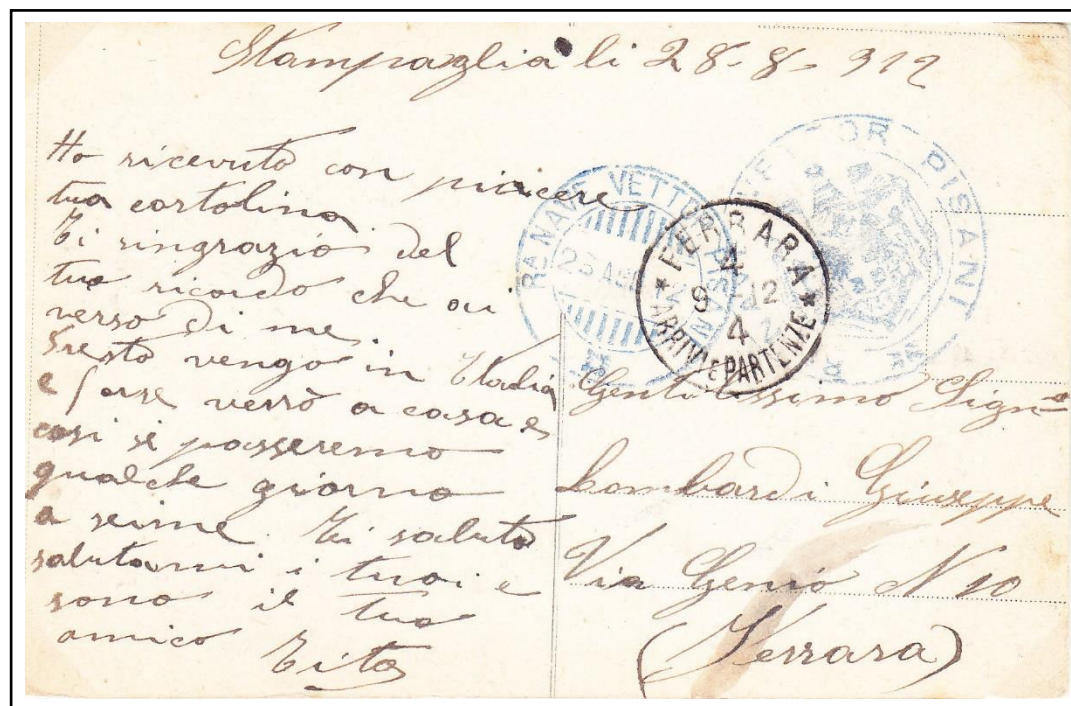 Stampaglia li 28-8-912
Ho ricevuto con piacere
tua cartolina
Ti ringrazio del
tuo ricordo che ai
verso di me
Presto vengo in Italia
e forse verrò a casa e
cosi si passeremo
qualche giorno
a sieme. Ti saluto
salutami i tuoi e
sono il tuo
amico Tito
R. NAVE VETTOR PISANI
VETTOR PISANI
FERRARA
9 12
4
ARRIVI E PARTENZE
Gentilissimo Sign.
Lombardi Giuseppe
Via Genio N 10
(Ferrara)